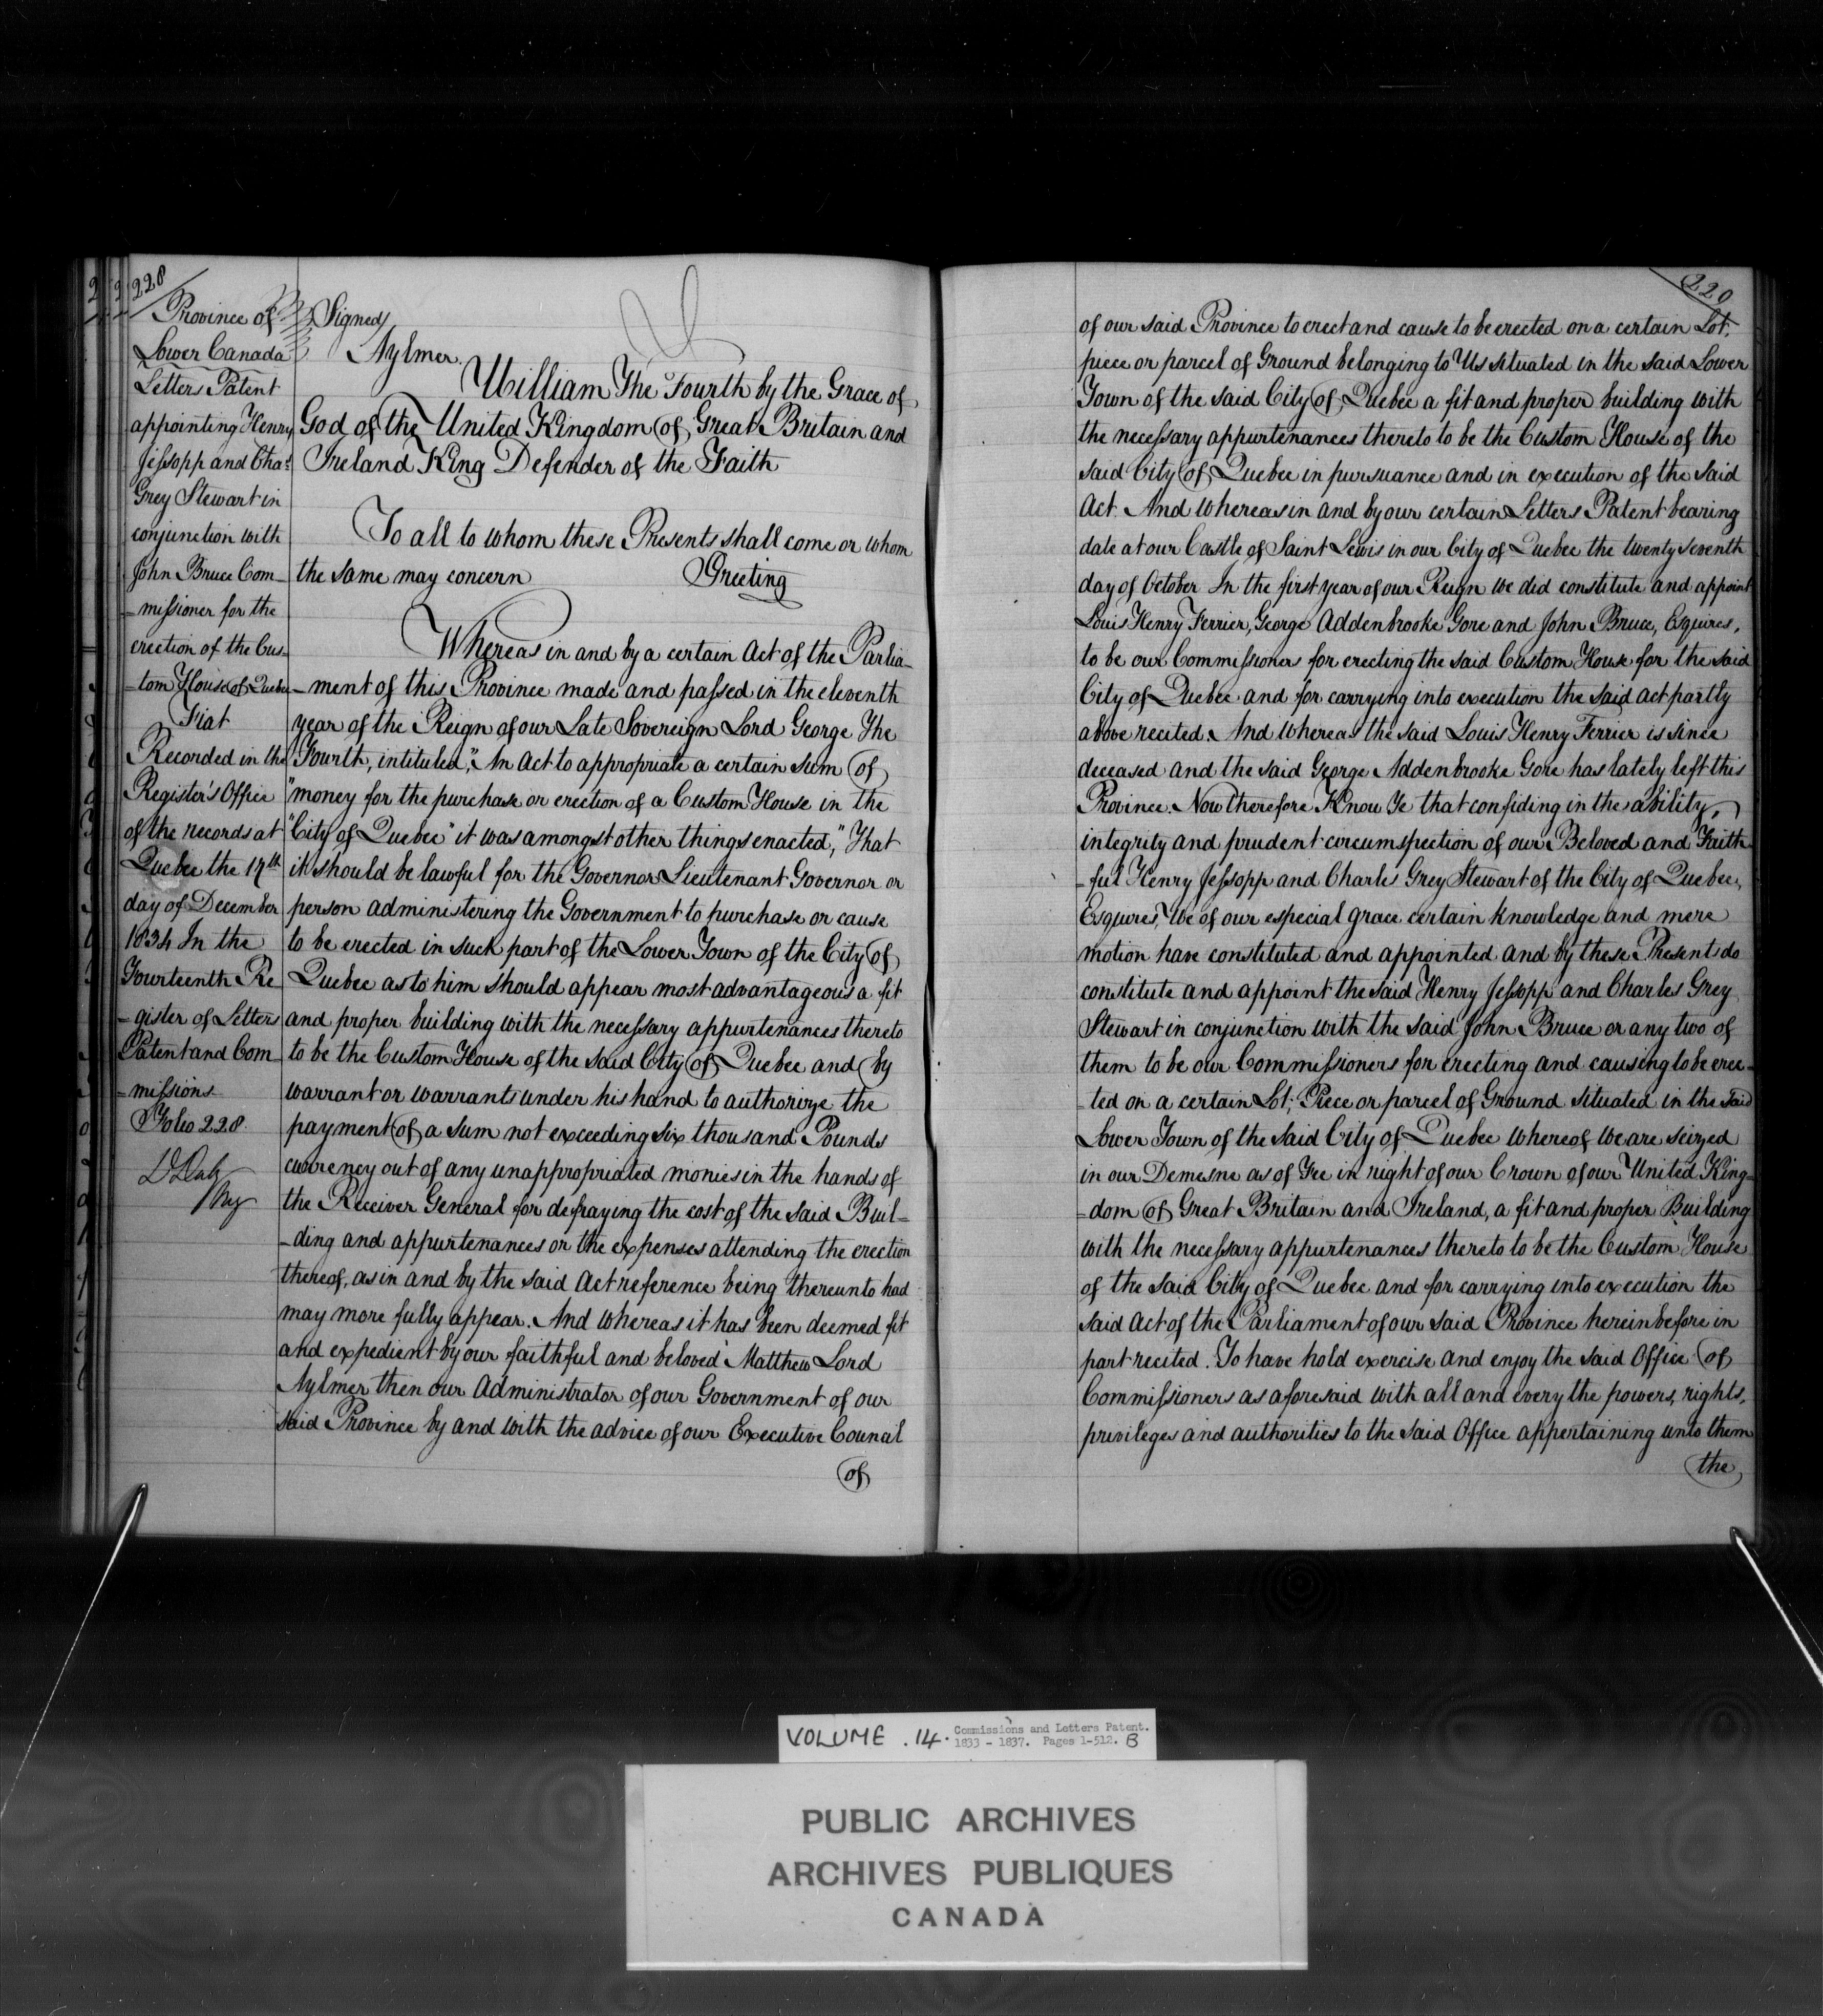 228
Province of
Lower Canada
Letters Patent
appointing Henry
Jessopp and Chas
Grey Stewart in
conjunction with
John Bruce Com-
-missioner for the
erection of the Cus-
-tom House of Quebec
Fiat
Recorded in the
Register's Office
of the records at
Quebec the 17th
day of December
1834 In the
Fourteenth Re
-gister of Letters
Patent and Com-
-missions
Folio 228.
D Daly
Reg
Signed
Aylmer.
William The Fourth by the Grace of
God of the United Kingdom of Great Britain and
Ireland King Defender of the Faith
To all to whom these Presents shall come or whom
the same may concern Greeting
Whereas in and by a certain Act of the Parlia-
-ment of this Province made and passed in the eleventh
year of the Reign of our Late Sovereign Lord George The
Fourth, intituled, "An Act to appropriate a certain sum of
"money for the purchase or erection of a Custom House in the
"City of Quebec" it was amongst other things enacted, "That
it should be lawful for the Governor Lieutenant Governor or
person administering the Government to purchase or cause
to be erected in such part of the Lower Town of the City of
Quebec as to him should appear most advantageous a fit
and proper building with the necessary appurtenances thereto
to be the Custom House of the said City of Quebec and by
warrant or warrants under his hand to authorize the
payment of a sum not exceeding six thousand Pounds
currency out of any unappropriated monies in the hands of
the Receiver General for defraying the cost of the said Buil-
-ding and appurtenances or the expenses attending the erection
thereof, as in and by the said Act reference being thereunto had
may more fully appear. And whereas it has been deemed fit
and expedient by our faithful and beloved Matthew Lord
Aylmer then our Administrator of our Government of our
said Province by and with the advice of our Executive Council
of
229
of our said Province to erect and cause to be erected on a certain Lot,
piece or parcel of Ground belonging to Us situated in the said Lower
Town of the said City of Quebec a fit and proper building with
the necessary appurtenances thereto to be the Custom House of the
said City of Quebec in pursuance and in execution of the said
Act. And whereas in and by our certain Letters Patent bearing
date at our Castle of Saint Lewis in our City of Quebec the twenty seventh
day of October In the first year of our Reign we did constitute and appoint
Louis Henry Ferrier, George Addenbrooke Gore and John Bruce, Esquires,
to be our Commissioners for erecting the said Custom House for the said
City of Quebec and for carrying into execution the said act partly
above recited. And whereas the said Louis Henry Ferrier is since
deceased and the said George Addenbrooke Gore has lately left this
Province. Now therefore Know Ye that confiding in the ability,
integrity and prudent circumspection of our Beloved and Faith
-ful Henry Jessopp and Charles Grey Stewart of the City of Quebec,
Esquires, We of our especial grace certain knowledge and mere
motion have constituted and appointed and by these Presents do
constitute and appoint the said Henry Jessopp and Charles Grey
Stewart in conjunction with the said John Bruce or any two of
them to be our Commissioners for erecting and causing to be erec-
-ted on a certain Lot, Piece or parcel of Ground situated in the said
Lower Town of the said City of Quebec whereof We are seized
in our Demesne as of Fee in right of our Crown of our United King-
-dom of Great Britain and Ireland, a fit and proper Building
with the necessary appurtenances thereto to be the Custom House
of the said City of Quebec and for carrying into execution the
said Act of the Parliament of our said Province hereinbefore in
part recited. To have hold exercise and enjoy the said Office of
Commissioners as aforesaid with all and every the powers, rights,
privileges and authorities to the said Office appertaining unto them
the
VOLUME .14. Commissions and Letters Patent.
1833 - 1837. Pages 1-512. B
PUBLIC ARCHIVES
ARCHIVES PUBLIQUES
CANADA